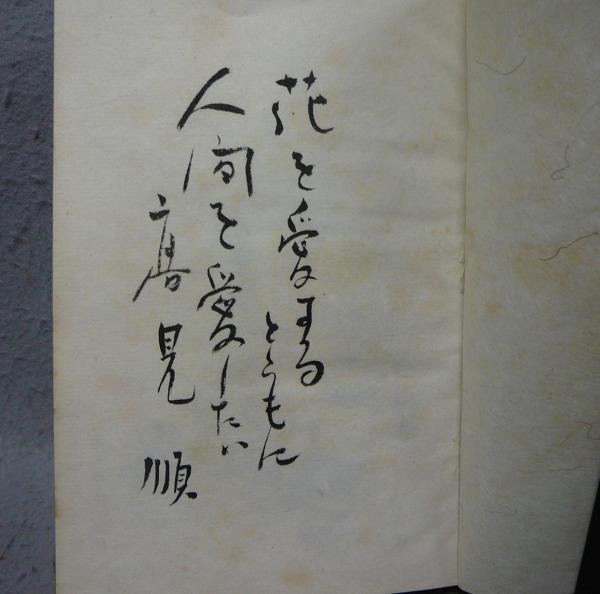 花を愛する
とゝもに
人間を愛したい
高見順